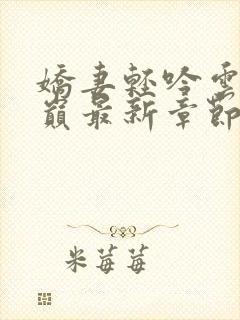 嬌妻輕吟雲
巔最新章節
米莓莓